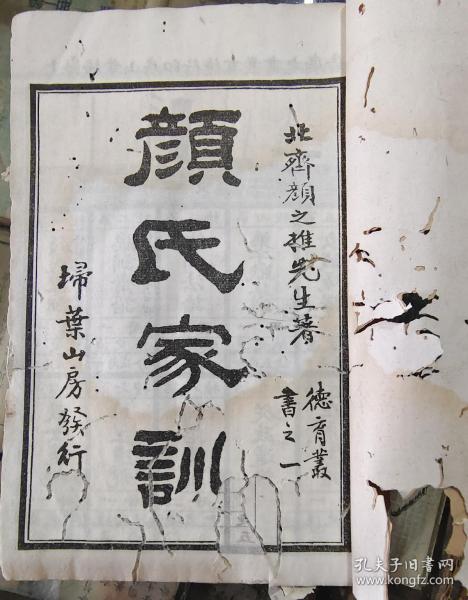 北齊顔之推先生著
德育叢
書之一
顔氏家訓
埽葉山房發行
孔夫子旧书网
www.kongfz.com